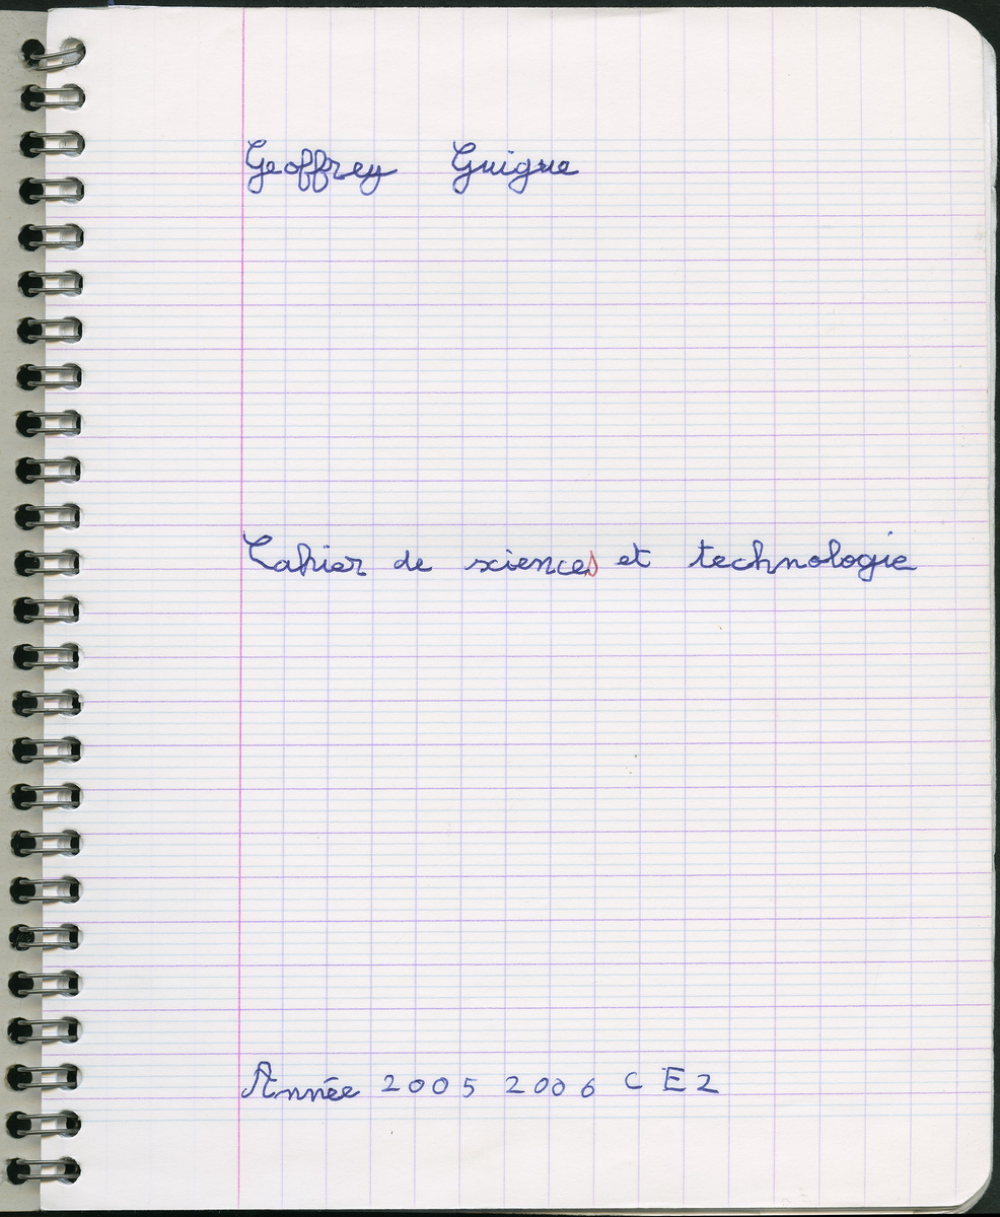 Geoffrey Guigue
Cahier de sciences et technologie
Année 2005 2006 CE2